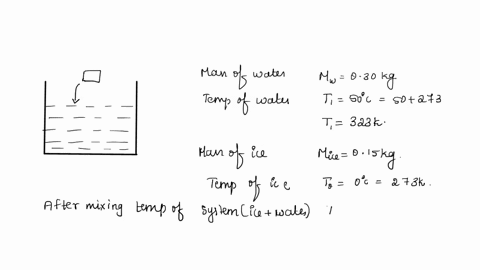 Mass of water Mw = 0.30 kg
Temp of water T1 = 50°C = 50+273
T1 = 323k.
Mass of ice Mice = 0.15kg.
Temp of ice T0 = 0°C = 273k.
After mixing temp of system (ice + water)